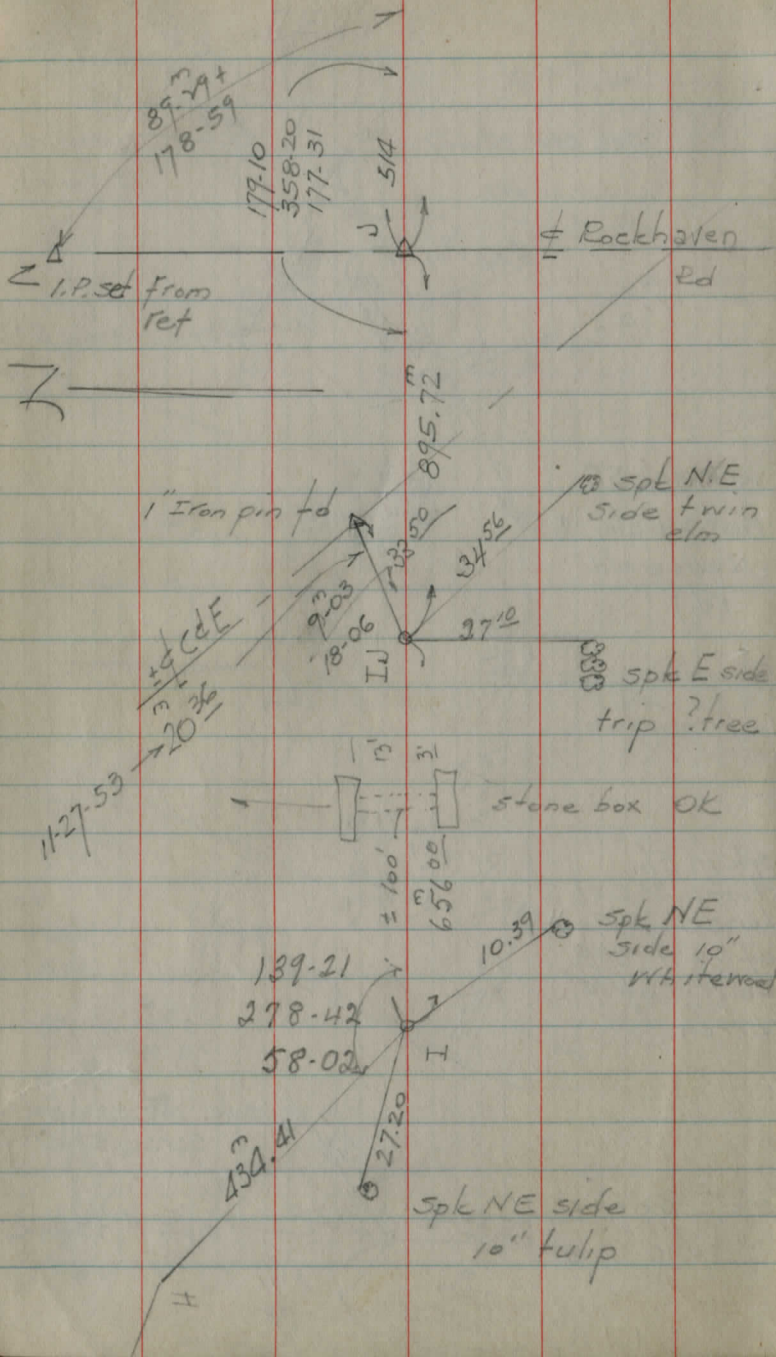 89-29+
3
178-59
179-10
358-20
177-31
514
J
℄ Rockhaven
Rd
I.P. set from
ref
895.72
3
1" Iron pin fd
spk N.E
side twin
elm
33 50
34 56
9-03
3
18-06
27 10
IJ
spk E side
trip ? tree
20 36
11-27-53
13'
3'
stone box OK
± 100'
656 00
3
10.39
spk NE
side 10"
Whitewood
139-21
278-42
58-02
I
27.20
434.41
3
spk NE side
10" tulip
H